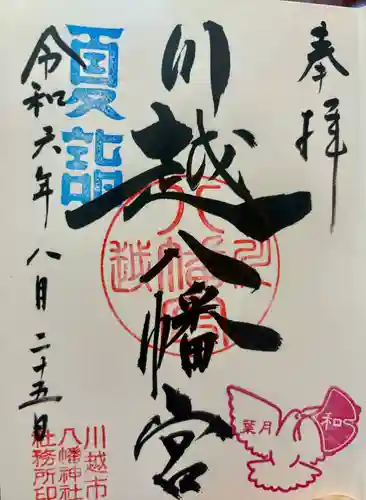 奉拝
川越八幡宮
夏詣
令和六年八月二十五日
川越市
八幡神社
社務所印
葉月
和